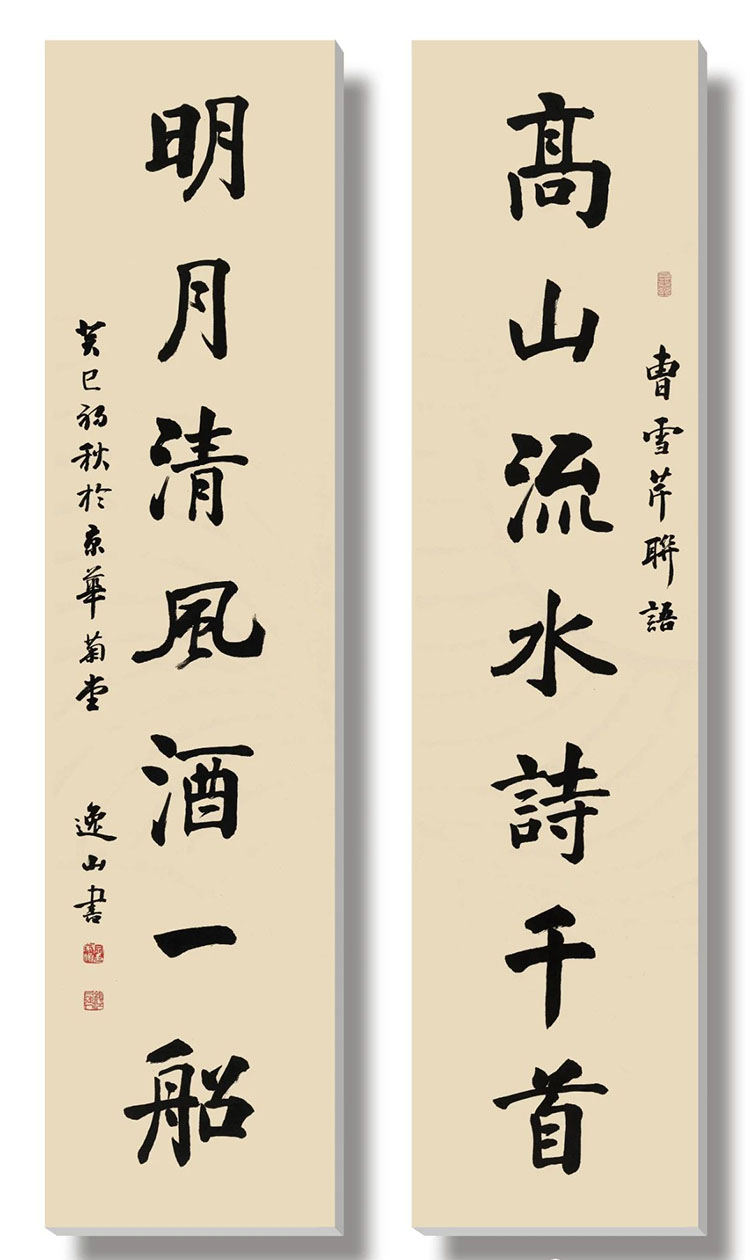 曹雪芹聯語
髙山流水詩千首
明月清風酒一船
癸巳初秋於京華菊堂 逸山書